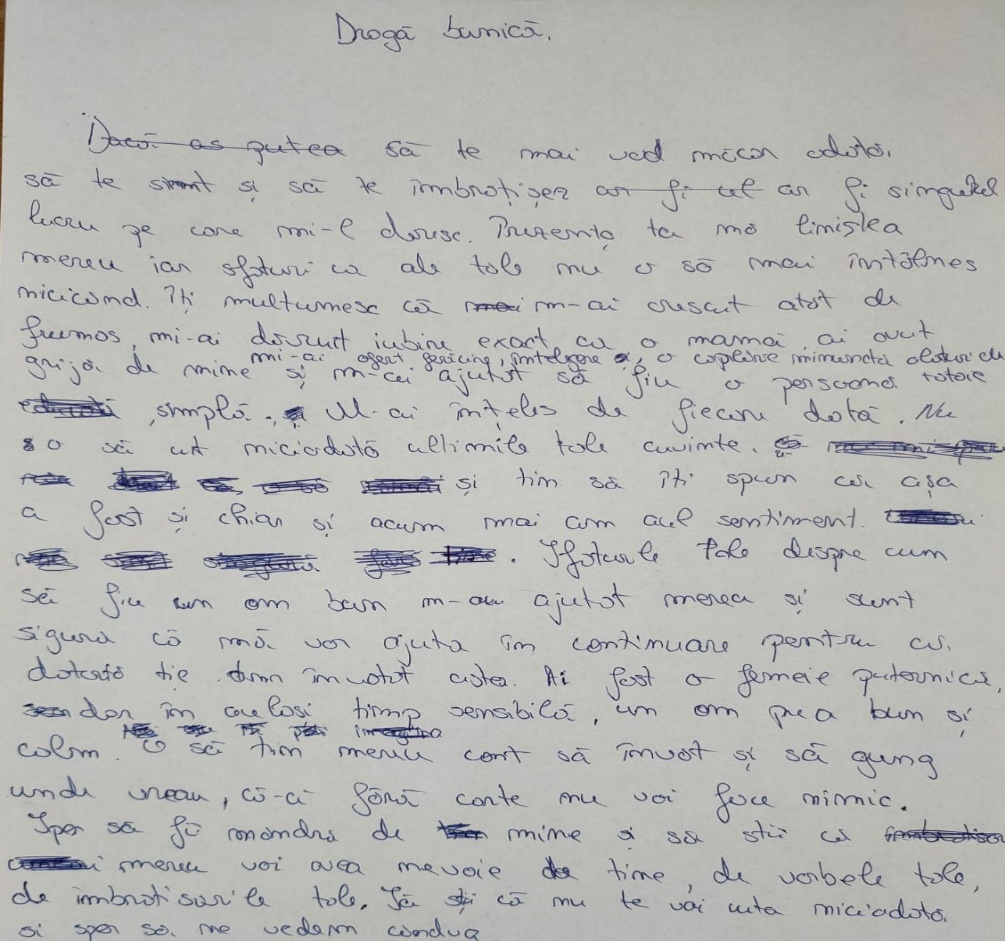 Dragă bunică,
Dacă as putea să te mai vad măcar odată,
să te simt și să te îmbrățișez ar fi cel ar fi singurul
lucru pe care mi-l doresc. Prezența ta mă liniștea
mereu iar sfaturi ca ale tale nu o să mai întâlnesc
nicicând. Iți multumesc că m-ai crescut atât de
frumos, mi-ai dăruit iubire exact ca o mamă, ai avut
mi-ai oferit fericire, înțelegere, o copilărie minunată alături de
grijă de mine și m-ai ajutat să fiu o persoană
simplă, M-ai înțeles de fiecare dată. Nu
o să uit niciodată ultimile tale cuvinte,
și țin să îți spun că așa
a fost și chiar și acum mai am acel sentiment.
Sfaturile tale despre cum
să fiu un om bun m-au ajutat mereu și sunt
sigură că mă vor ajuta în continuare pentru că
datorită ție am învățat asta. Ai fost o femeie puternică,
dar în același timp sensibilă, un om prea bun și
imagina
calm. O să țin mereu cont să învăț și să ajung
unde vreau, că-ci fără carte nu voi face nimic.
Sper să fi mândră de mine și să știi că
mereu voi avea nevoie de tine, de vorbele tale,
de îmbrățisarile tale. Să știi că nu te voi uita niciodată
si sper să ne vedem cândva